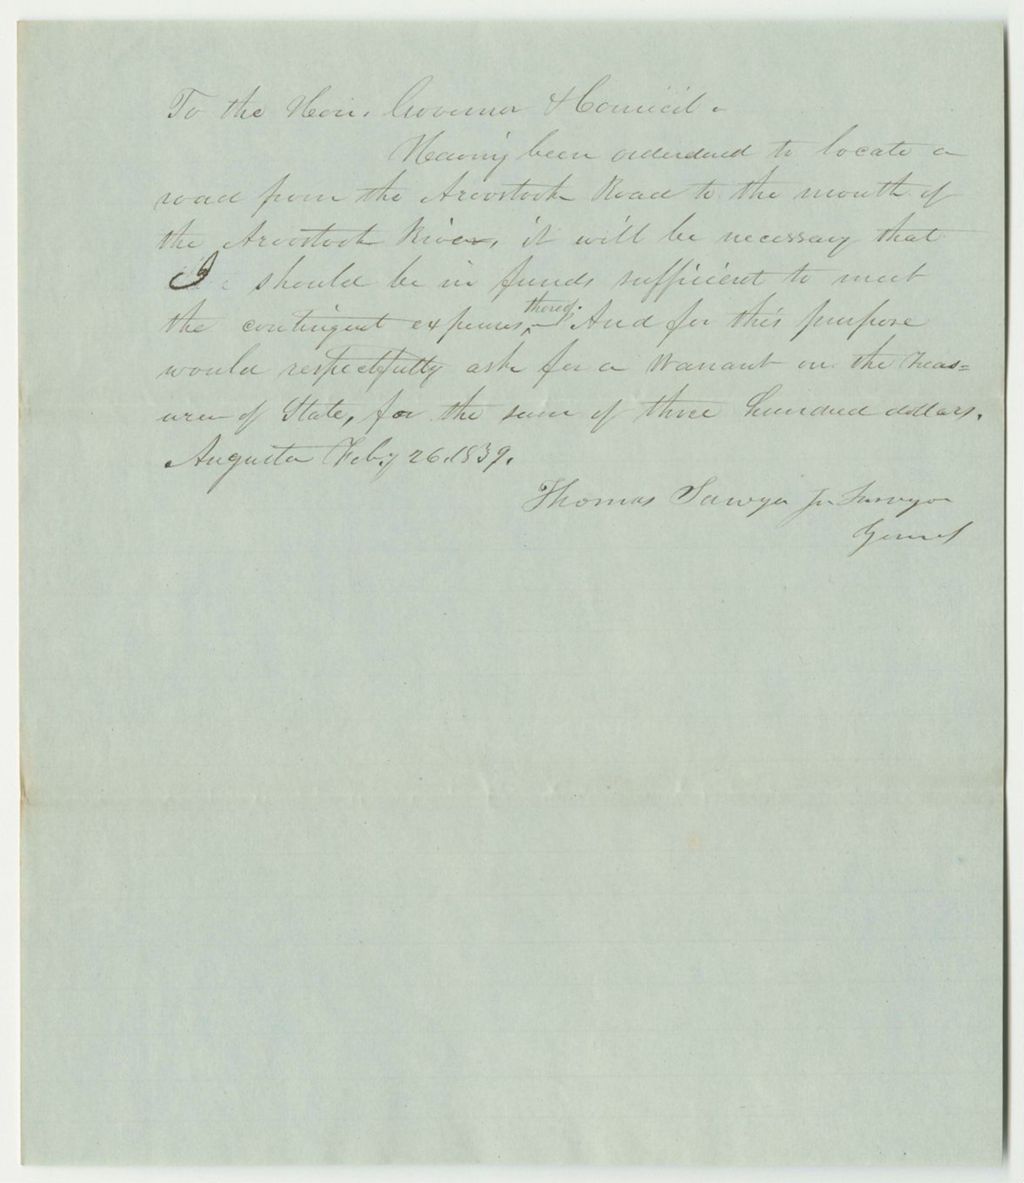 To the Hon. Governor & Council.
Having been orderdred to locate a
road from the Aroostook Road to the mouth of
the Aroostook River, it will be necessary that
I should be in funds sufficient to meet
the contingent expenses thereof. And for this purpose
would respectfully ask for a Warrant on the Treas=
urer of State, for the sum of three hundred dollars.
Augusta Feby 26. 1839.
Thomas Sawyer Jr Surveyor
General